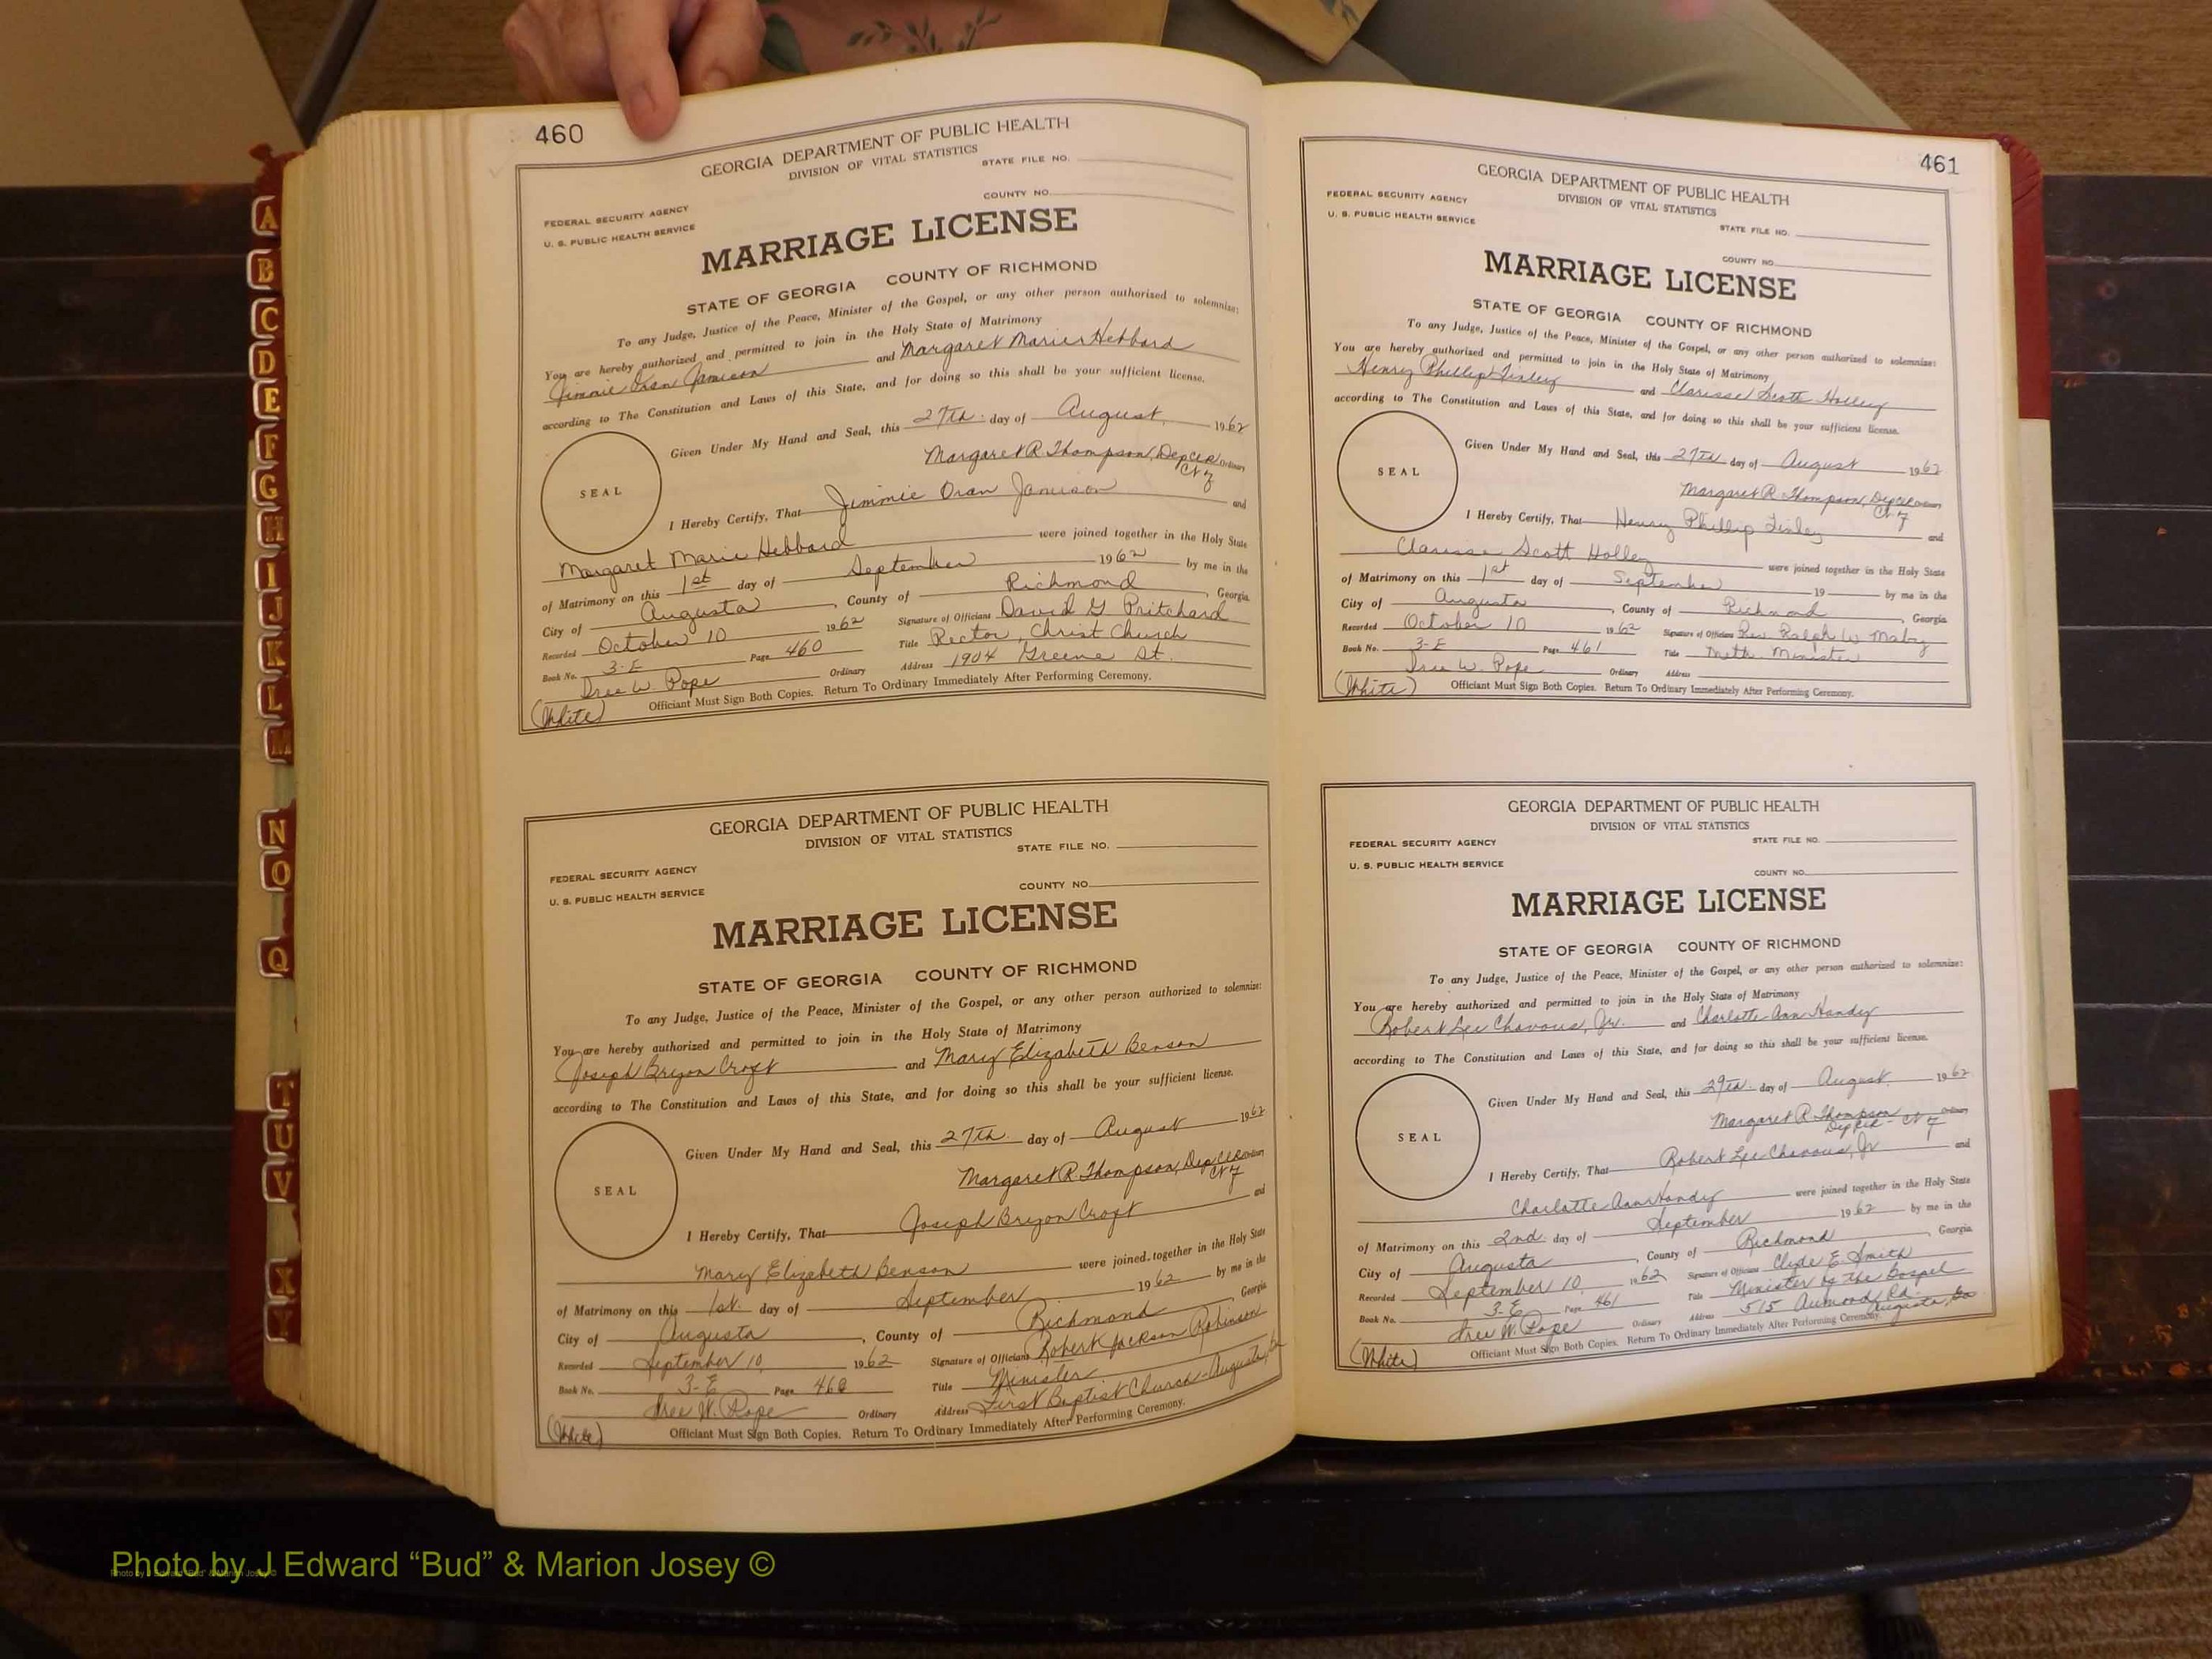 A
B
C
D
E
F
G
H
I
J
K
L
M
N
O
Q
T
U
V
X
Y
460
GEORGIA DEPARTMENT OF PUBLIC HEALTH
DIVISION OF VITAL STATISTICS
STATE FILE NO.
COUNTY NO.
FEDERAL SECURITY AGENCY
U. S. PUBLIC HEALTH SERVICE
MARRIAGE LICENSE
STATE OF GEORGIA COUNTY OF RICHMOND
To any Judge, Justice of the Peace, Minister of the Gospel, or any other person authorized to solemnize:
You are hereby authorized and permitted to join in the Holy State of Matrimony
Jimmie Oran Jamison and Margaret Marie Hebbard
according to The Constitution and Laws of this State, and for doing so this shall be your sufficient license.
Given Under My Hand and Seal, this 27th. day of August, 1962
Margaret R. Thompson, Dep Clk Ordinary
SEAL
I Hereby Certify, That Jimmie Oran Jamison and
Margaret Marie Hebbard were joined together in the Holy State
of Matrimony on this 1st day of September 1962 by me in the
City of Augusta, County of Richmond, Georgia.
Recorded October 10 1962 Signature of Officians David G Pritchard
Book No. 3-E Page 460 Title Rector, Christ Church
W. Pope Ordinary Address 1904 Greene St.
(White) Officiant Must Sign Both Copies. Return To Ordinary Immediately After Performing Ceremony.
GEORGIA DEPARTMENT OF PUBLIC HEALTH
DIVISION OF VITAL STATISTICS
STATE FILE NO.
COUNTY NO.
FEDERAL SECURITY AGENCY
U. S. PUBLIC HEALTH SERVICE
MARRIAGE LICENSE
STATE OF GEORGIA COUNTY OF RICHMOND
To any Judge, Justice of the Peace, Minister of the Gospel, or any other person authorized to solemnize:
You are hereby authorized and permitted to join in the Holy State of Matrimony
Joseph Bryon Croft and Mary Elizabeth Benson
according to The Constitution and Laws of this State, and for doing so this shall be your sufficient license.
Given Under My Hand and Seal, this 27th. day of August 1962
Margaret R. Thompson, Dep Clk Ordinary
SEAL
I Hereby Certify, That Joseph Bryon Croft and
Mary Elizabeth Benson were joined together in the Holy State
of Matrimony on this 1st. day of September 1962 by me in the
City of Augusta, County of Richmond, Georgia.
Recorded September 10, 1962 Signature of Officians Robert Jackson Robinson
Book No. 3-E Page 460 Title Minister
W. Pope Ordinary Address First Baptist Church - Augusta, Ga
(White) Officiant Must Sign Both Copies. Return To Ordinary Immediately After Performing Ceremony.
461
GEORGIA DEPARTMENT OF PUBLIC HEALTH
DIVISION OF VITAL STATISTICS
FEDERAL SECURITY AGENCY
U. S. PUBLIC HEALTH SERVICE
STATE FILE NO.
COUNTY NO.
MARRIAGE LICENSE
STATE OF GEORGIA COUNTY OF RICHMOND
To any Judge, Justice of the Peace, Minister of the Gospel, or any other person authorized to solemnize:
You are hereby authorized and permitted to join in the Holy State of Matrimony
Henry Phillip Finley and Clarisse Scott Holley
according to The Constitution and Laws of this State, and for doing so this shall be your sufficient license.
Given Under My Hand and Seal, this 27th day of August 1962
Margaret R. Thompson, Dep Clk Ordinary
SEAL
I Hereby Certify, That Henry Phillip Finley and
Clarisse Scott Holley were joined together in the Holy State
of Matrimony on this 1st day of September 19 by me in the
City of Augusta, County of Richmond, Georgia.
Recorded October 10 1962 Signature of Officians Rev. Ralph W. Mabry
Book No. 3-E Page 461 Title Meth. Minister
W. Pope Ordinary Address
(White) Officiant Must Sign Both Copies. Return To Ordinary Immediately After Performing Ceremony.
GEORGIA DEPARTMENT OF PUBLIC HEALTH
DIVISION OF VITAL STATISTICS
STATE FILE NO.
FEDERAL SECURITY AGENCY
U. S. PUBLIC HEALTH SERVICE
COUNTY NO.
MARRIAGE LICENSE
STATE OF GEORGIA COUNTY OF RICHMOND
To any Judge, Justice of the Peace, Minister of the Gospel, or any other person authorized to solemnize:
You are hereby authorized and permitted to join in the Holy State of Matrimony
Robert Lee Chavous, Jr. and Charlotte Ann Handy
according to The Constitution and Laws of this State, and for doing so this shall be your sufficient license.
Given Under My Hand and Seal, this 29th. day of August, 1962
Margaret R. Thompson Ordinary
Dep Clk
SEAL
I Hereby Certify, That Robert Lee Chavous, Jr and
Charlotte Ann Handy were joined together in the Holy State
of Matrimony on this 2nd. day of September 1962 by me in the
City of Augusta, County of Richmond, Georgia.
Recorded September 10, 1962 Signature of Officians Clyde E. Smith
Book No. 3-E Page 461 Title Minister of the Gospel
W. Pope Ordinary Address 515 Aumond Rd. Augusta, Ga
(White) Officiant Must Sign Both Copies. Return To Ordinary Immediately After Performing Ceremony.
Photo by J Edward “Bud” & Marion Josey ©
Photo by J Edward "Bud" & Marion Josey ©